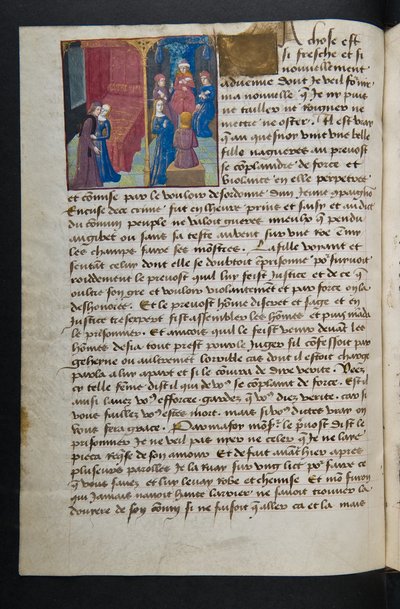 A chose est
si fresche et si
nouvellement
advenue dont je veil fo'nir
ma nouvelle q' je ne puis
ne tailler ne roigner ne
mettre ne oster. Il est vray
q' au quesnoy vint une belle
fille nagueres au prevost
se co'plaindre de force et
violence en elle perpetree
et co'mise par le vouloir desordonne d'un jeune co'paignon
ceste de ce crime fut en l'heure prins et saisy et au dit
du co'mun peuple ne valoit gueres mieulx q' pendu
au gibet ou sans sa teste
les champs faire ses mo'stres. La fille voyant et
sentant celuy dont elle se douloit e'prisonne poursuivoit
roiddement le prevost qu'il luy feist justice et de ce q'
oultre son gre et vouloir violentement et par force on l'a
deshonoree. Et le prevost ho'me discret et saige et en
justice tresexpert fist assembler les ho'mes et puis manda
le prisonnier. Et aincois qu'il le feist venir devant les
ho'mes desia tout prest pour le juger s'il confessoit par
gehenne ou aultrement l'orrible cas dont il estoit charge
parla a luy apart et si le co'iura de dire verite. Veez
cy telle fe'me dist il qui de vo' se complaint de force. Est il
ainsi l'avez vo' efforcee gardez q' vo' diez verite. car si
vous faillez vo' estes mort. mais si vo' dictes vray on
vous fera grace. Par ma foy mo'sr le prevost dist le
prisonnier Je ne veil pas nyer ne celer q' je ne l'aye
pieca req'se de son amour Et de fait avant hier apres
plusieurs parolles je la ruay sur ung lict po' faire ce
q' vous savez et luy levay robe et chemise Et mo' furon
qui jamais n'avoit hante larrier ne savoit trouver la
douvere de son co'nin si ne faisoit q' aller ca et la mais